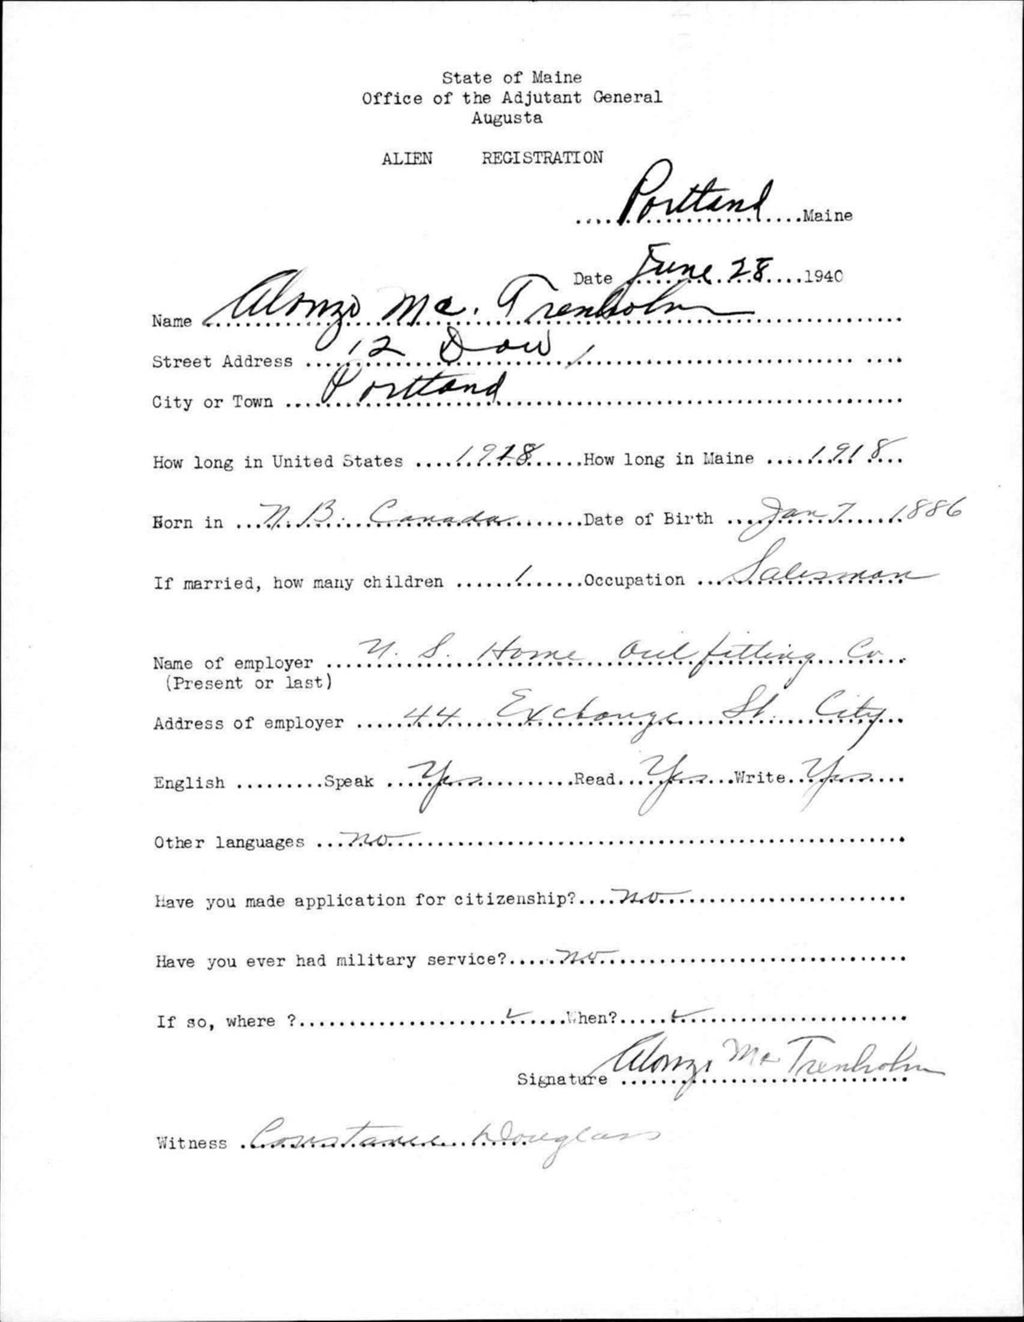 State of Maine
Office of the Adjutant General
Augusta
ALIEN REGISTRATION
.... Portland ....Maine
Date June 28 ....1940
Name Alonzo Mc. Trenholm
Street Address 12 Dow
City or Town Portland
How long in United States 1918 How long in Maine 1918
Born in N.B. Canada Date of Birth Jan 7 1886
If married, how many children 1 Occupation Salesman
Name of employer U. S. Home Out fitting Co.
(Present or last)
Address of employer 44 Exchange St. City
English .........Speak Yes Read Yes Write Yes
Other languages no
Have you made application for citizenship? no
Have you ever had military service? no
If so, where ? When?
Signature Alonzo Mc Trenholm
Witness Constance Douglass